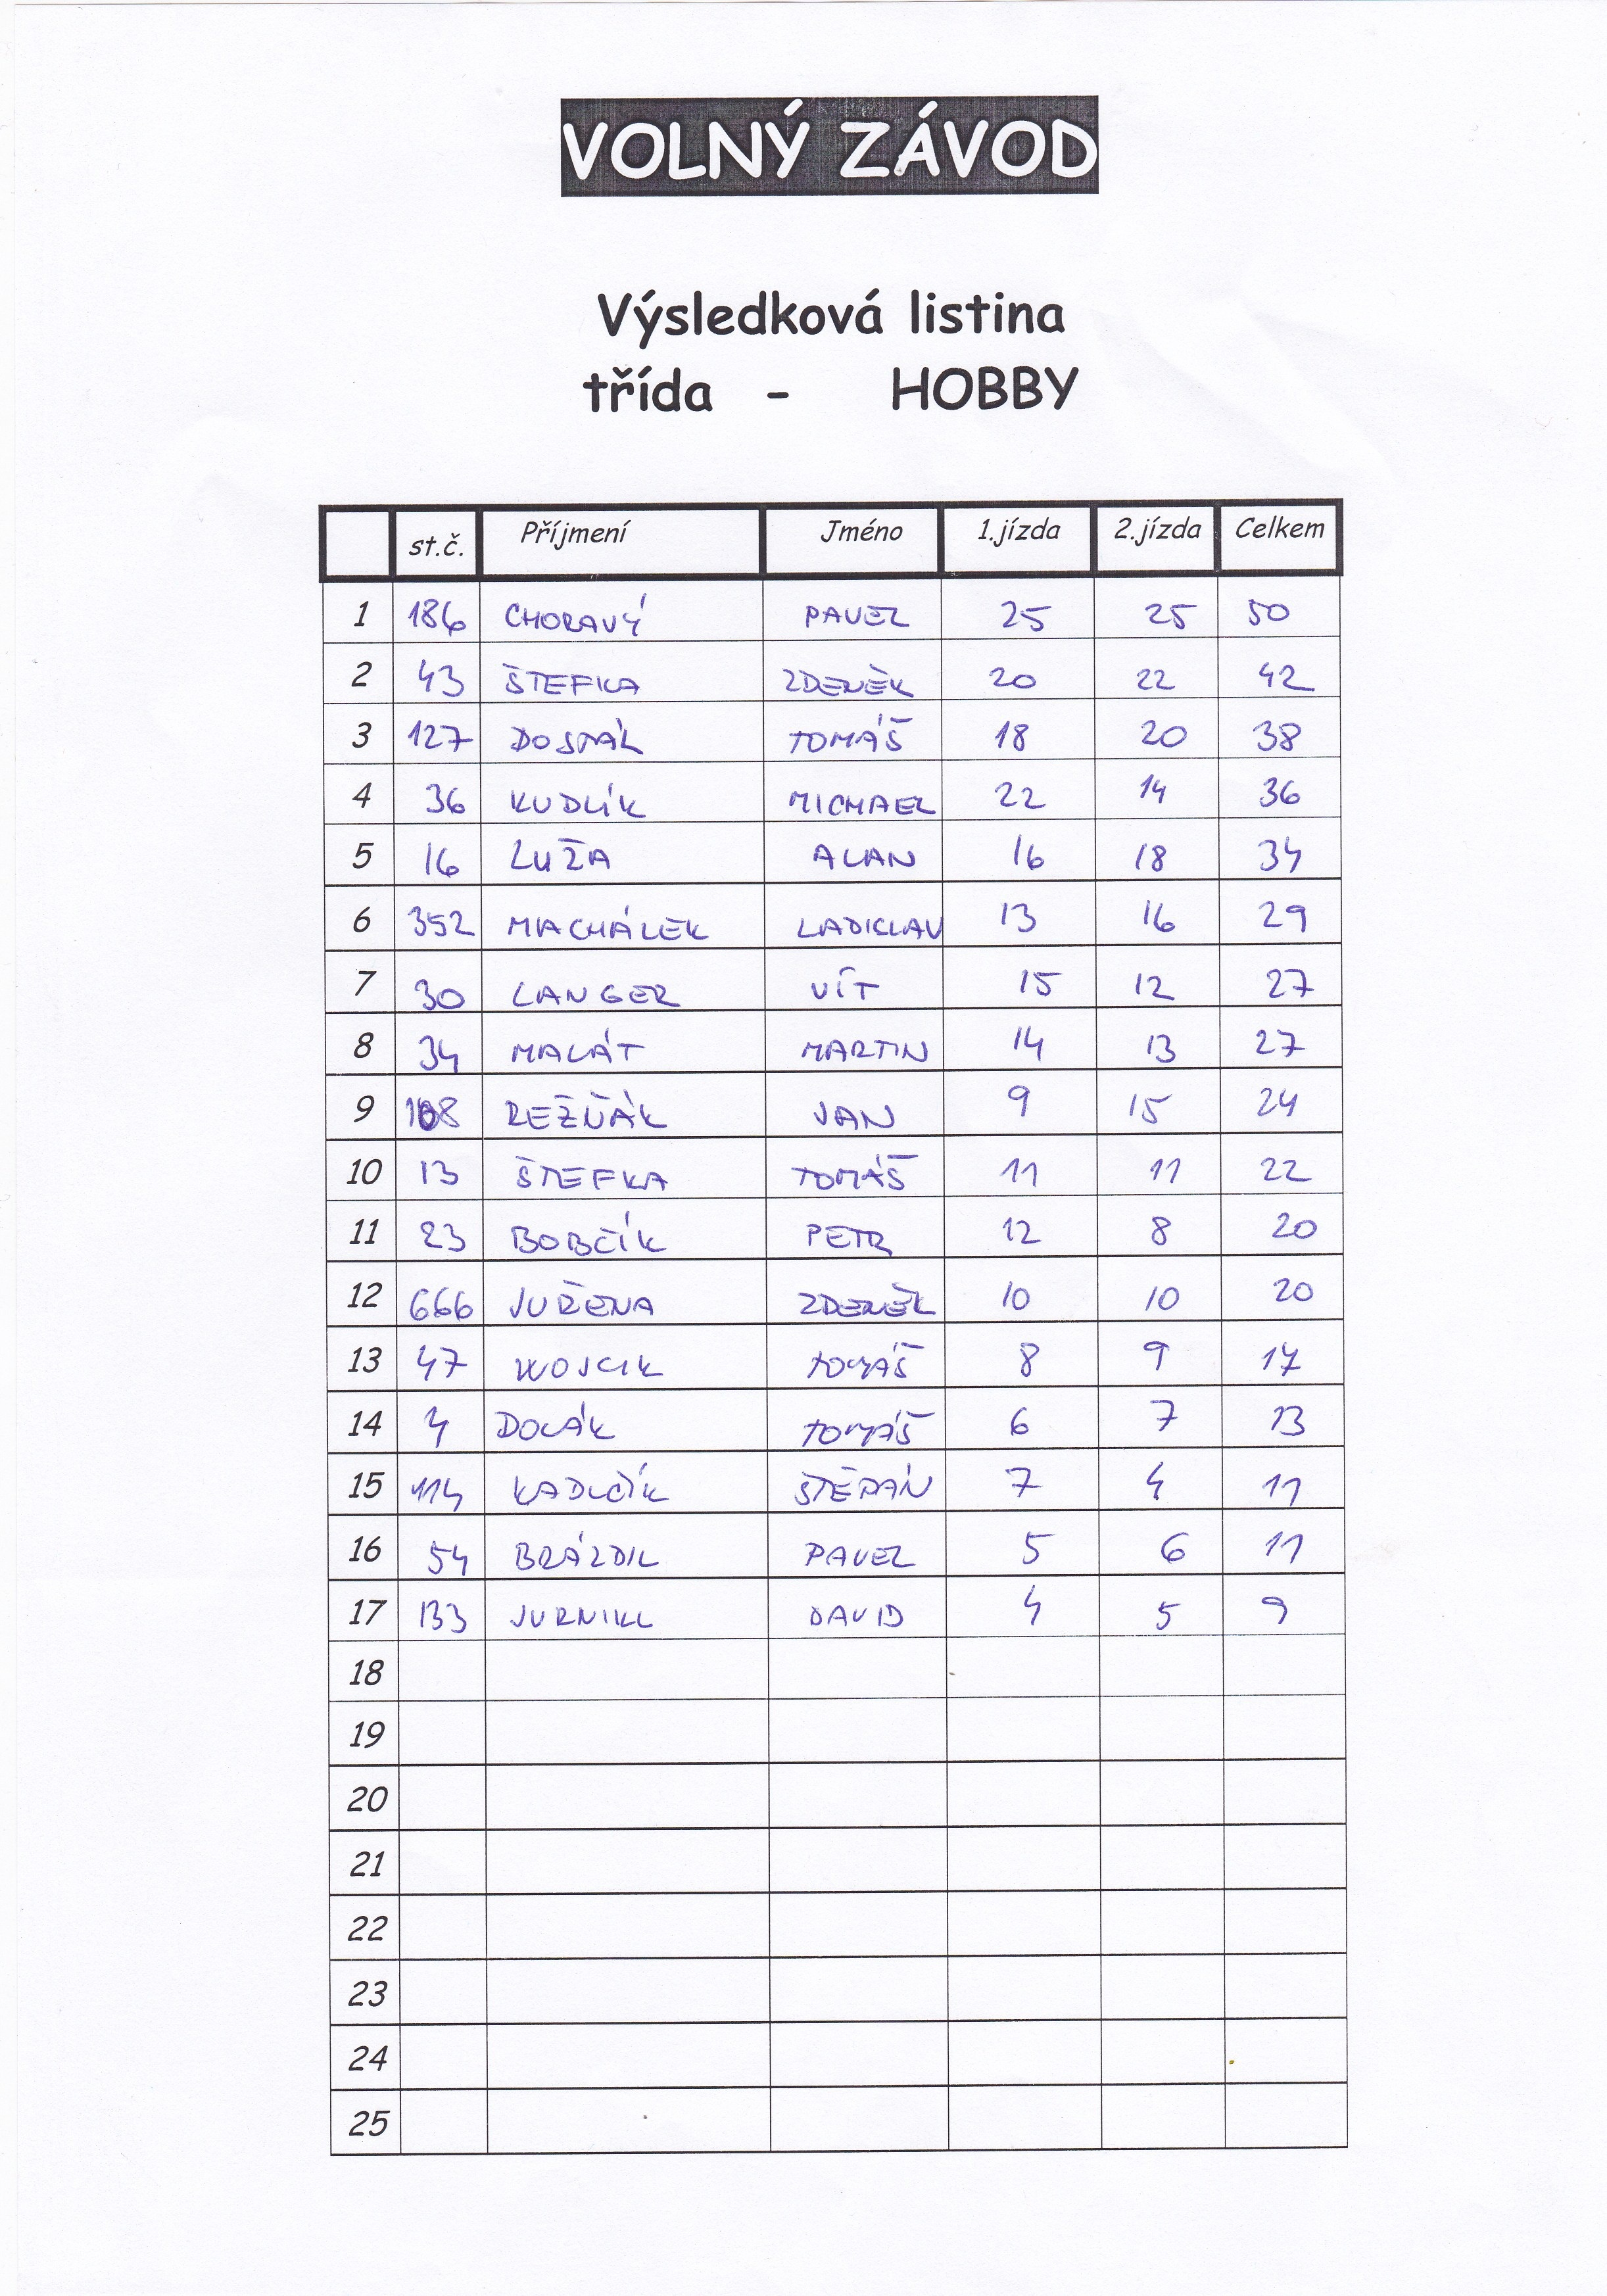 VOLNÝ ZÁVOD
Výsledková listina
třída - HOBBY
st.č. Příjmení Jméno 1.jízda 2.jízda Celkem
1 186 CHORAVÝ PAVEL 25 25 50
2 43 ŠTEFKA ZDENĚK 20 22 42
3 127 DOSTÁL TOMÁŠ 18 20 38
4 36 KUDLÍK MICHAEL 22 14 36
5 16 LUŽA ALAN 16 18 34
6 352 MACHÁLEK LADISLAV 13 16 29
7 30 LANGER VÍT 15 12 27
8 34 MALÁT MARTIN 14 13 27
9 108 REŽŇÁK JAN 9 15 24
10 13 ŠTEFKA TOMÁŠ 11 11 22
11 23 BOBČÍK PETR 12 8 20
12 666 JUŘENA ZDENĚK 10 10 20
13 47 WOJCIK TOMÁŠ 8 9 17
14 4 DOLÁK TOMÁŠ 6 7 13
15 114 KADLČÍK ŠTĚPÁN 7 4 11
16 54 BRÁZDIL PAVEL 5 6 11
17 133 JURNIKL DAVID 4 5 9
18
19
20
21
22
23
24
25